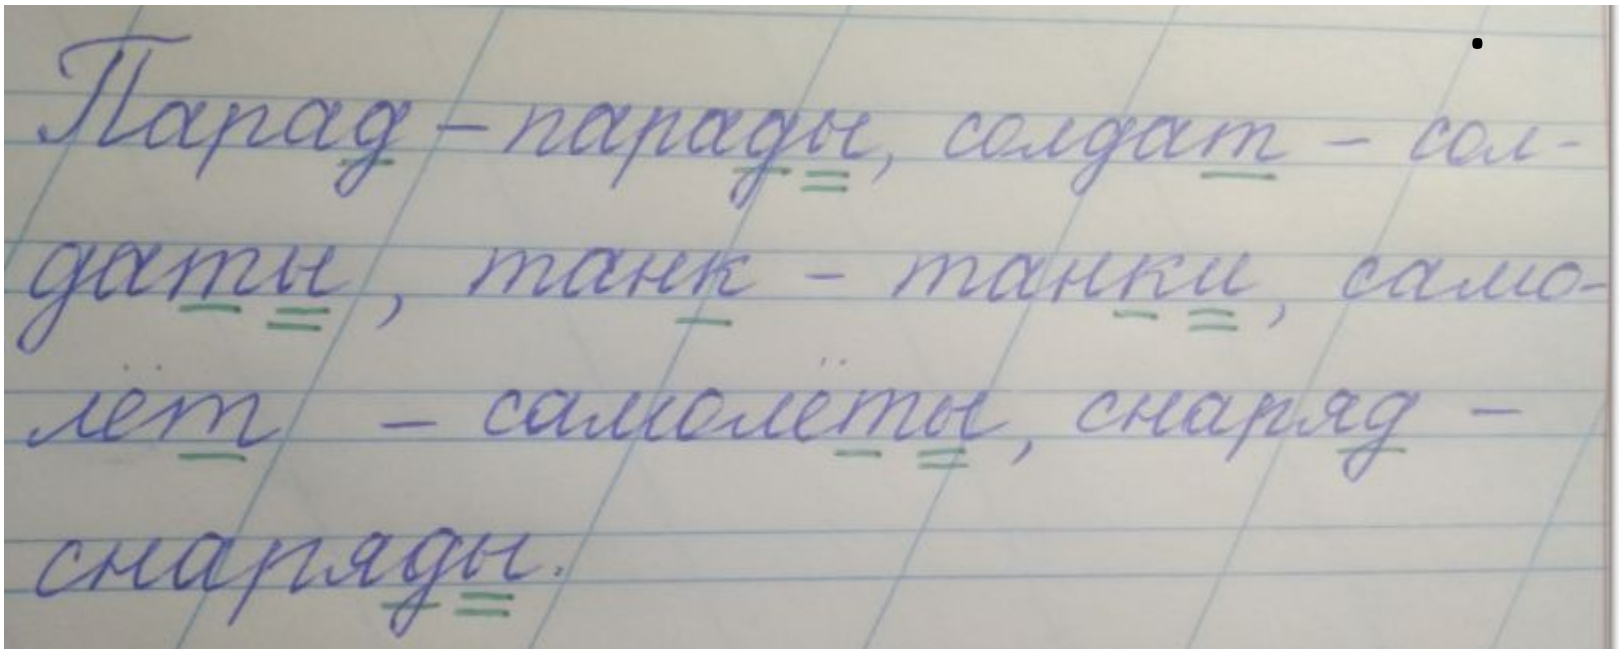 Парад – парады, солдат – сол-
даты, танк – танки, само-
лёт – самолёты, снаряд –
снаряды.